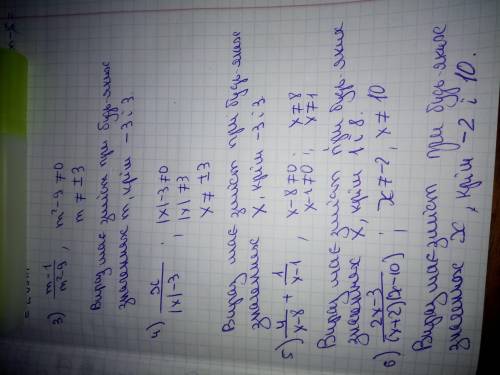 3) m-1/m²-9 , m²-9≠0
m ≠ ±3
Вираз має зміст при будь-яких
значеннях m, крім -3 і 3.
4) x/|x|-3 ; |x|-3≠0
|x| ≠3
x ≠ ±3
Вираз має зміст при будь-яких
значеннях x, крім -3 і 3.
5) 4/x-8 + 1/x-1 , x-8≠0; x≠8
x-1≠0; x≠1
Вираз має зміст при будь-яких
значеннях x, крім 1 і 8.
6) 2x-3/(x+2)(x-10) ; x≠-2, x≠10
Вираз має зміст при будь-яких
значеннях x, крім -2 і 10.